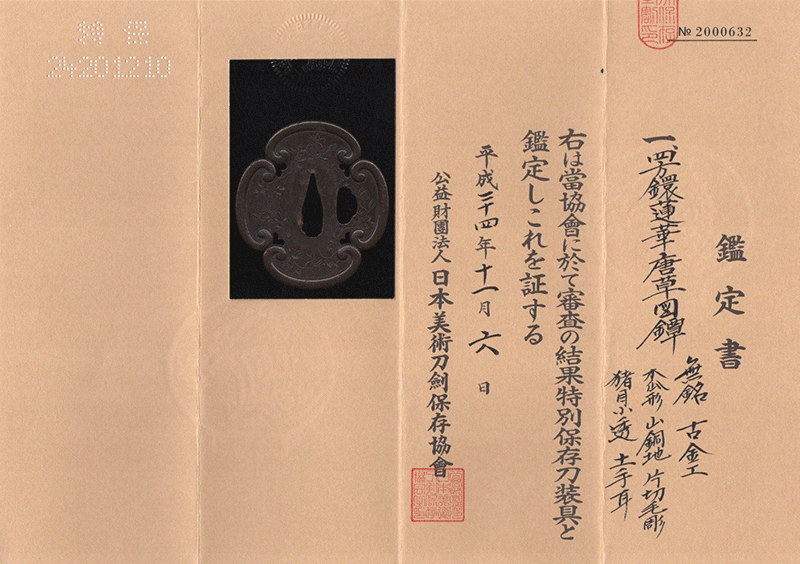 № 2000632
鑑定書
一、四方鐶蓮華唐草図鐔
無銘 古金工
木瓜形 山銅地 片切毛彫
猪目小透 土手耳
右は當協會に於て審査の結果特別保存刀装具と
鑑定しこれを証する
平成二十四年十一月六日
公益財團法人 日本美術刀劍保存協會
特 保
24201210